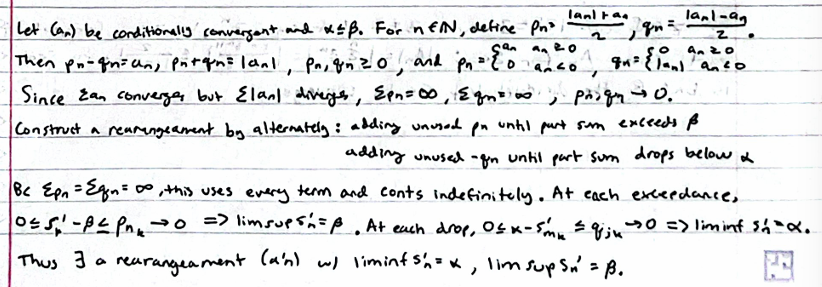 Let (an) be conditionally convergent and α≤β. For n∈N, define pn = (|an|+an)/2, qn = (|an|-an)/2.
Then pn-qn=an, pn+qn=|an|, pn,qn≥0, and pn={an an≥0, 0 an<0, qn={0 an≥0, |an| an<0
Since Σan converges but Σ|an| diverges, Σpn=∞, Σqn=∞, pn,qn→0.
Construct a rearrangeament by alternately: adding unused pn until part sum exceeds β
adding unused -qn until part sum drops below α
Bc Σpn=Σqn=∞, this uses every term and conts indefinitely. At each exceedance,
0≤Sk'-β≤pnk→0 => limsup Sn'=β. At each drop, 0≤α-S'mk≤qjk→0 => liminf Sn'=α.
Thus ∃ a rearangeament (a'n) w/ liminf S'n=α, limsup Sn'=β.